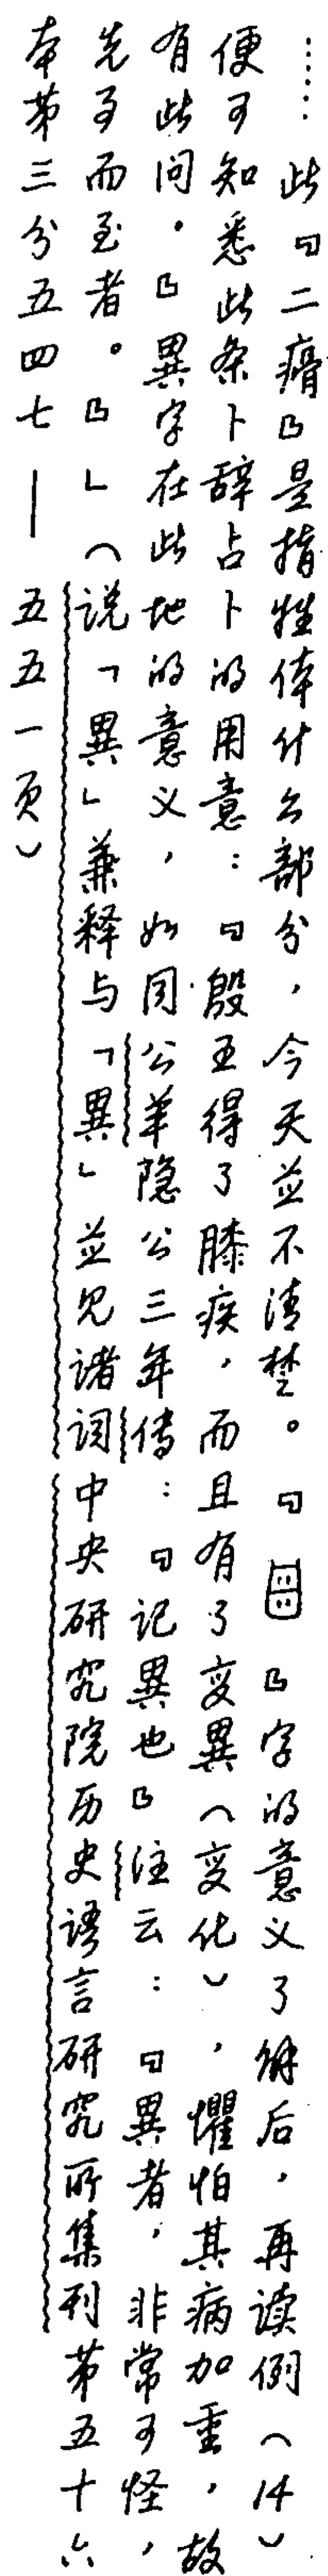 ……此『二𤺄』是指牲体什么部分，今天並不清楚。『』字的意义了解后，再读例（14）
便可知悉此条卜辞占卜的用意：『殷王得了膝疾，而且有了变異（变化），懼怕其病加重，故
有此问。『異字在此地的意义，如同公羊隐公三年传：『记異也』注云：『異者，非常可怪，
先事而至者。』」（说「異」兼释与「異」並见诸词中央研究院历史语言研究所集刊第五十六
本第三分五四七—五五一页）